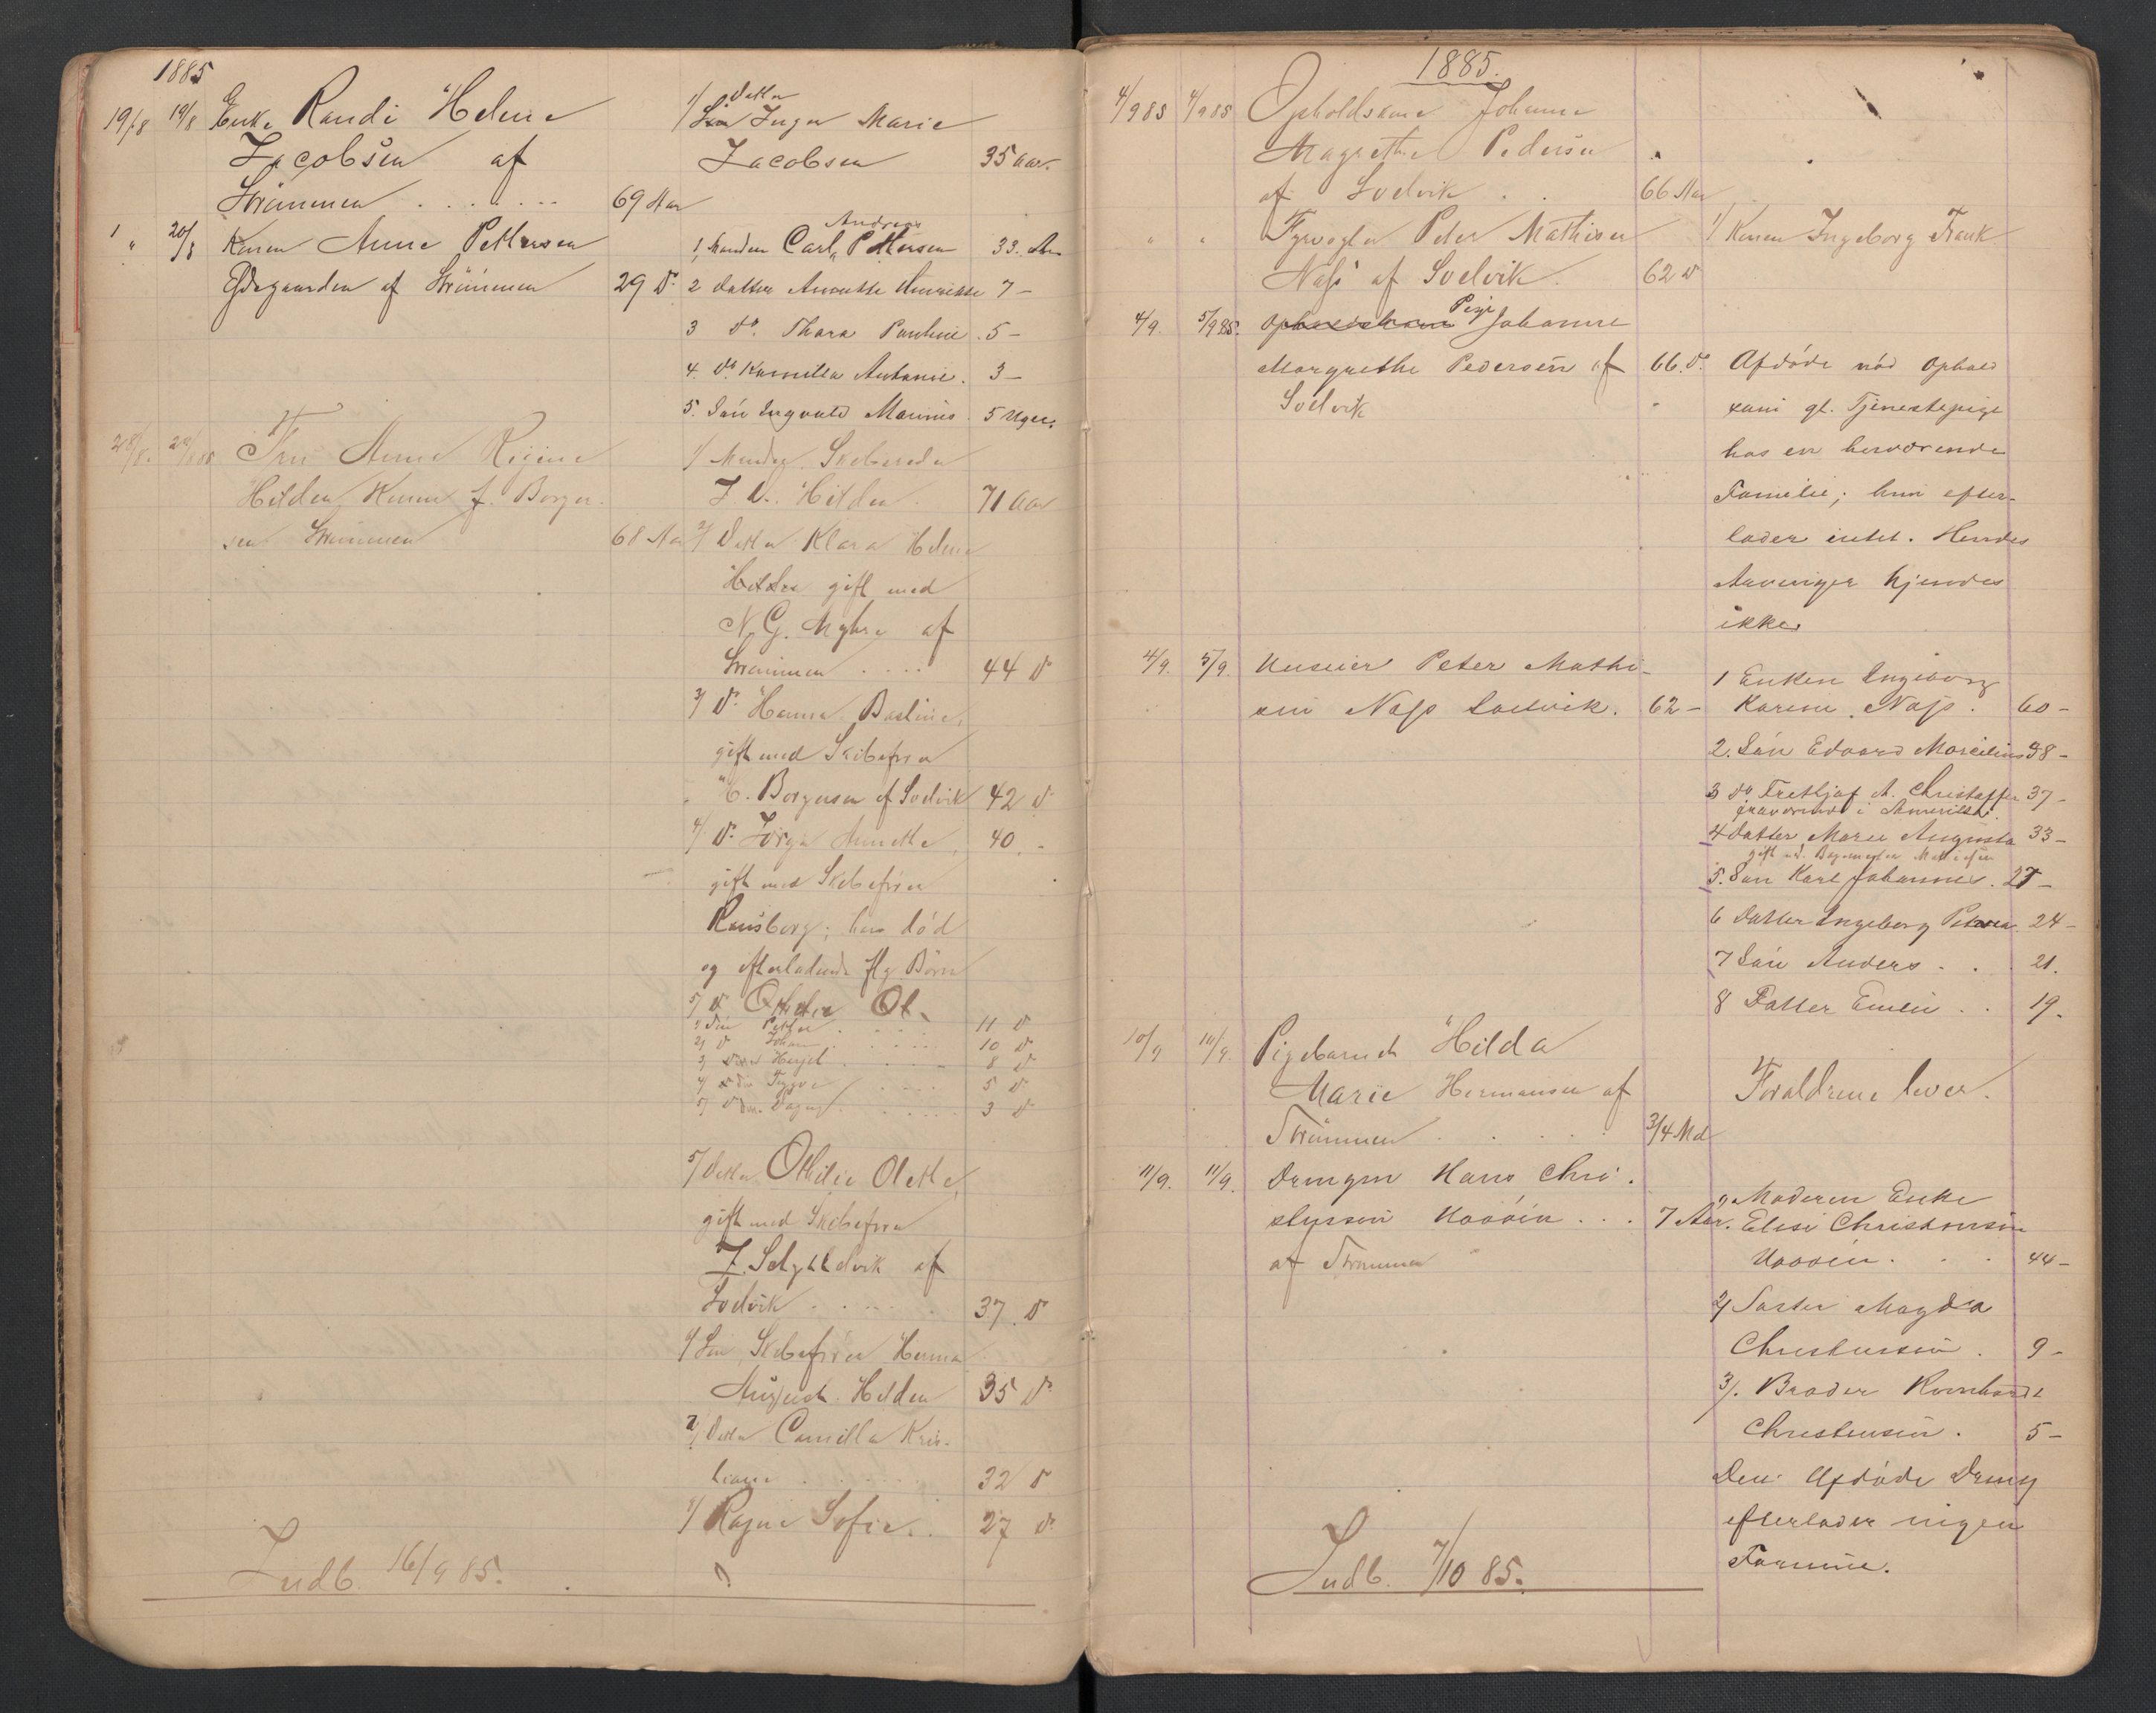 1885
19/8 19/8 Enke Randi Helene
Jacobsen af
Strømmen . . . . . . . 69 Aar
1/ Datter Inger Marie
Jacobsen 35 Aar.
1 " 20/8 Konen Anne Pettersen
af Strømmen 29 Do
Andreas
1, Manden Carl Pettersen 33. Aar
2 Datter Annette 7 –
3 Do. Thora Pauline . 5 –
4. Do. Kamilla Antonie . 3 –
5. Søn Ingvald Marinus . 5 Uger.
28/8. Fru Anne Regine
Hilden, Konen f. Borger-
sen Strømmen 68 Aar
1/ Manden, Skibsreder
J. Hilden . 71 Aar
2/ Datter Klara Helene
Hilden gift med
N. G. Myhre af
Strømmen . . . . 44 Do
3/ Do. Hanna Basline,
gift med Skibsfører
H. Borgersen af Svelvik 42 Do
4/ Do. Annette, 40. –
gift med Skibsfører
Ransborg; hun død
og efterladende flg Børn
5/ Do Ol.
Søn Petter . . . . . 11 Do
2/ Do Johan . . . . . 10 Do
3/ . . . . 8 Do
4/ Trygve . . . . 5 Do
5/ Dagny . . . . . 3 Do
5/ Datter Othilie Olette,
gift med Skibsfører
J. af
Svelvik . . . . . . 37. Do
6/ Søn, Skibsfører Herman
August Hilden 35 Do
7/ Datter Camilla Kris-
tiane . . . . . . 32 Do
8/ Ragna Sofie . . 27 Do
Indb. 16/9 85.
1885.
4/9 85 4/9 85 Opholdskone Johanne
Magrethe Pedersen
af Svelvik . . 66 Aar
" " Fyrvogter Peter Mathisen
Næss af Svelvik . 62 Do
1/ Konen Ingeborg
4/9. 5/9 85. Opholdskone Pige Johanne
Margrethe Pedersen af 66. Do.
Svelvik
Afdøde nød Ophold
som gl. Tjenestepige
hos en herværende
Familie; hun efter-
lader intet. Hendes
Arvinger kjendes
ikke.
4/9. 5/9. Peter Mathi-
sen Næss Svelvik. 62 –
1 Enken Ingeborg
Karine Næss . 60 –
2. Søn Edvard Marcelius 38 –
3 Do Frethjof A. Christoffer 37 –
fraværende i Amerika.
4 Datter Marie Augusta 33 –
gift m. Bagermester Mathisen
5. Søn Karl Johannes . 27 –
6 Datter Ingeborg Petrea . 24 –
7 Søn Anders . . . 21.
8 Datter Emilie . . 19.
10/9 10/9. Pigebarnet Hilda
Marie Hermansen af
Strømmen . . . . . 3/4 Md
Forældrene lever.
11/9. 11/9. Drengen Hans Chri-
stensen . . . 7 Aar.
af Strømmen
1, Moderen Enke
Elise Christensen
. . . 44 –
2/ Søster Magda
Christensen . 9 –
3/. Broder
Christensen . 5 –
Den Afdøde Dreng
efterlader ingen
Formue.
Indb. 7/10 85.